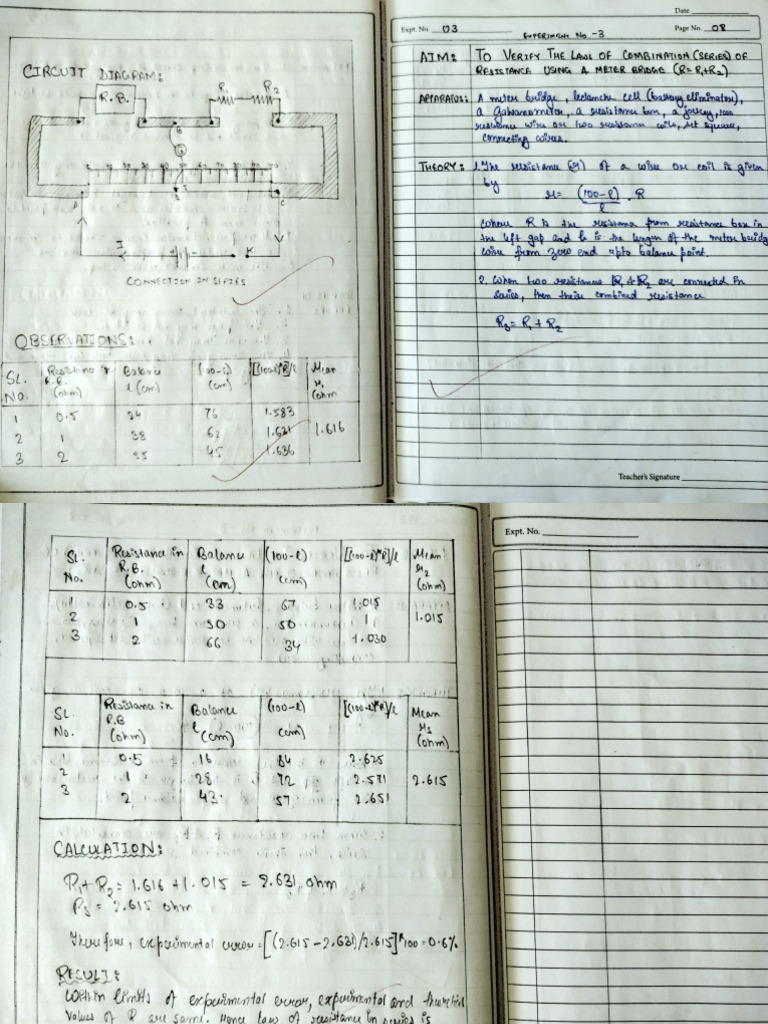 CIRCUIT DIAGRAM:
R.B.
R1 R2
B
G
C
K
CONNECTION IN SERIES
OBSERVATIONS:
SL. NO. R.B. (ohm) Balance l (cm) (100-l) (cm) [(100-l)*R]/l Mean r1 (ohm
1 0.5 24 76 1.583
2 1 38 62 1.631 1.616
3 2 55 45 1.636
Date
Expt. No. 03
Page No. 08
EXPERIMENT NO.-3
AIM: TO VERIFY THE LAWS OF COMBINATION (SERIES) OF
RESISTANCE USING A METER BRIDGE (R=R1+R2)
APPARATUS: A meter bridge, leclanche cell (battery eliminator),
a galvanometer, a resistance box, a jockey, two
resistance wire or two resistance coils, set square,
connecting wires.
THEORY: 1. The resistance (r) of a wire or coil is given
by
r = (100-l)/l . R
where R is the resistance from resistance box in
the left gap and l is the length of the meter bridge
wire from zero end upto balance point.
2. When two resistances R1 & R2 are connected in
series, then their combined resistance
Rs = R1 + R2
Teacher's Signature
Expt. No.
SL. No. Resistance in R.B. (ohm) Balance l (cm) (100-l) (cm) [(100-l)*R]/l Mean r2 (ohm)
1 0.5 33 67 1.015
2 1 50 50 1 1.015
3 2 66 34 1.030
SL. No. Resistance in R.B (ohm) Balance l (cm) (100-l) (cm) [(100-l)*R]/l Mean rs (ohm)
1 0.5 16 84 2.625
2 1 28 72 2.571 2.615
3 2 43 57 2.651
CALCULATION:
R1+R2 = 1.616 + 1.015 = 2.631 ohm
Rs = 2.615 ohm
Therefore, experimental error = [(2.615-2.631)/2.615]*100 = 0.6%
RESULT:
Within limits of experimental error, experimental and theoretical
values of R are same. Hence law of resistance in series is